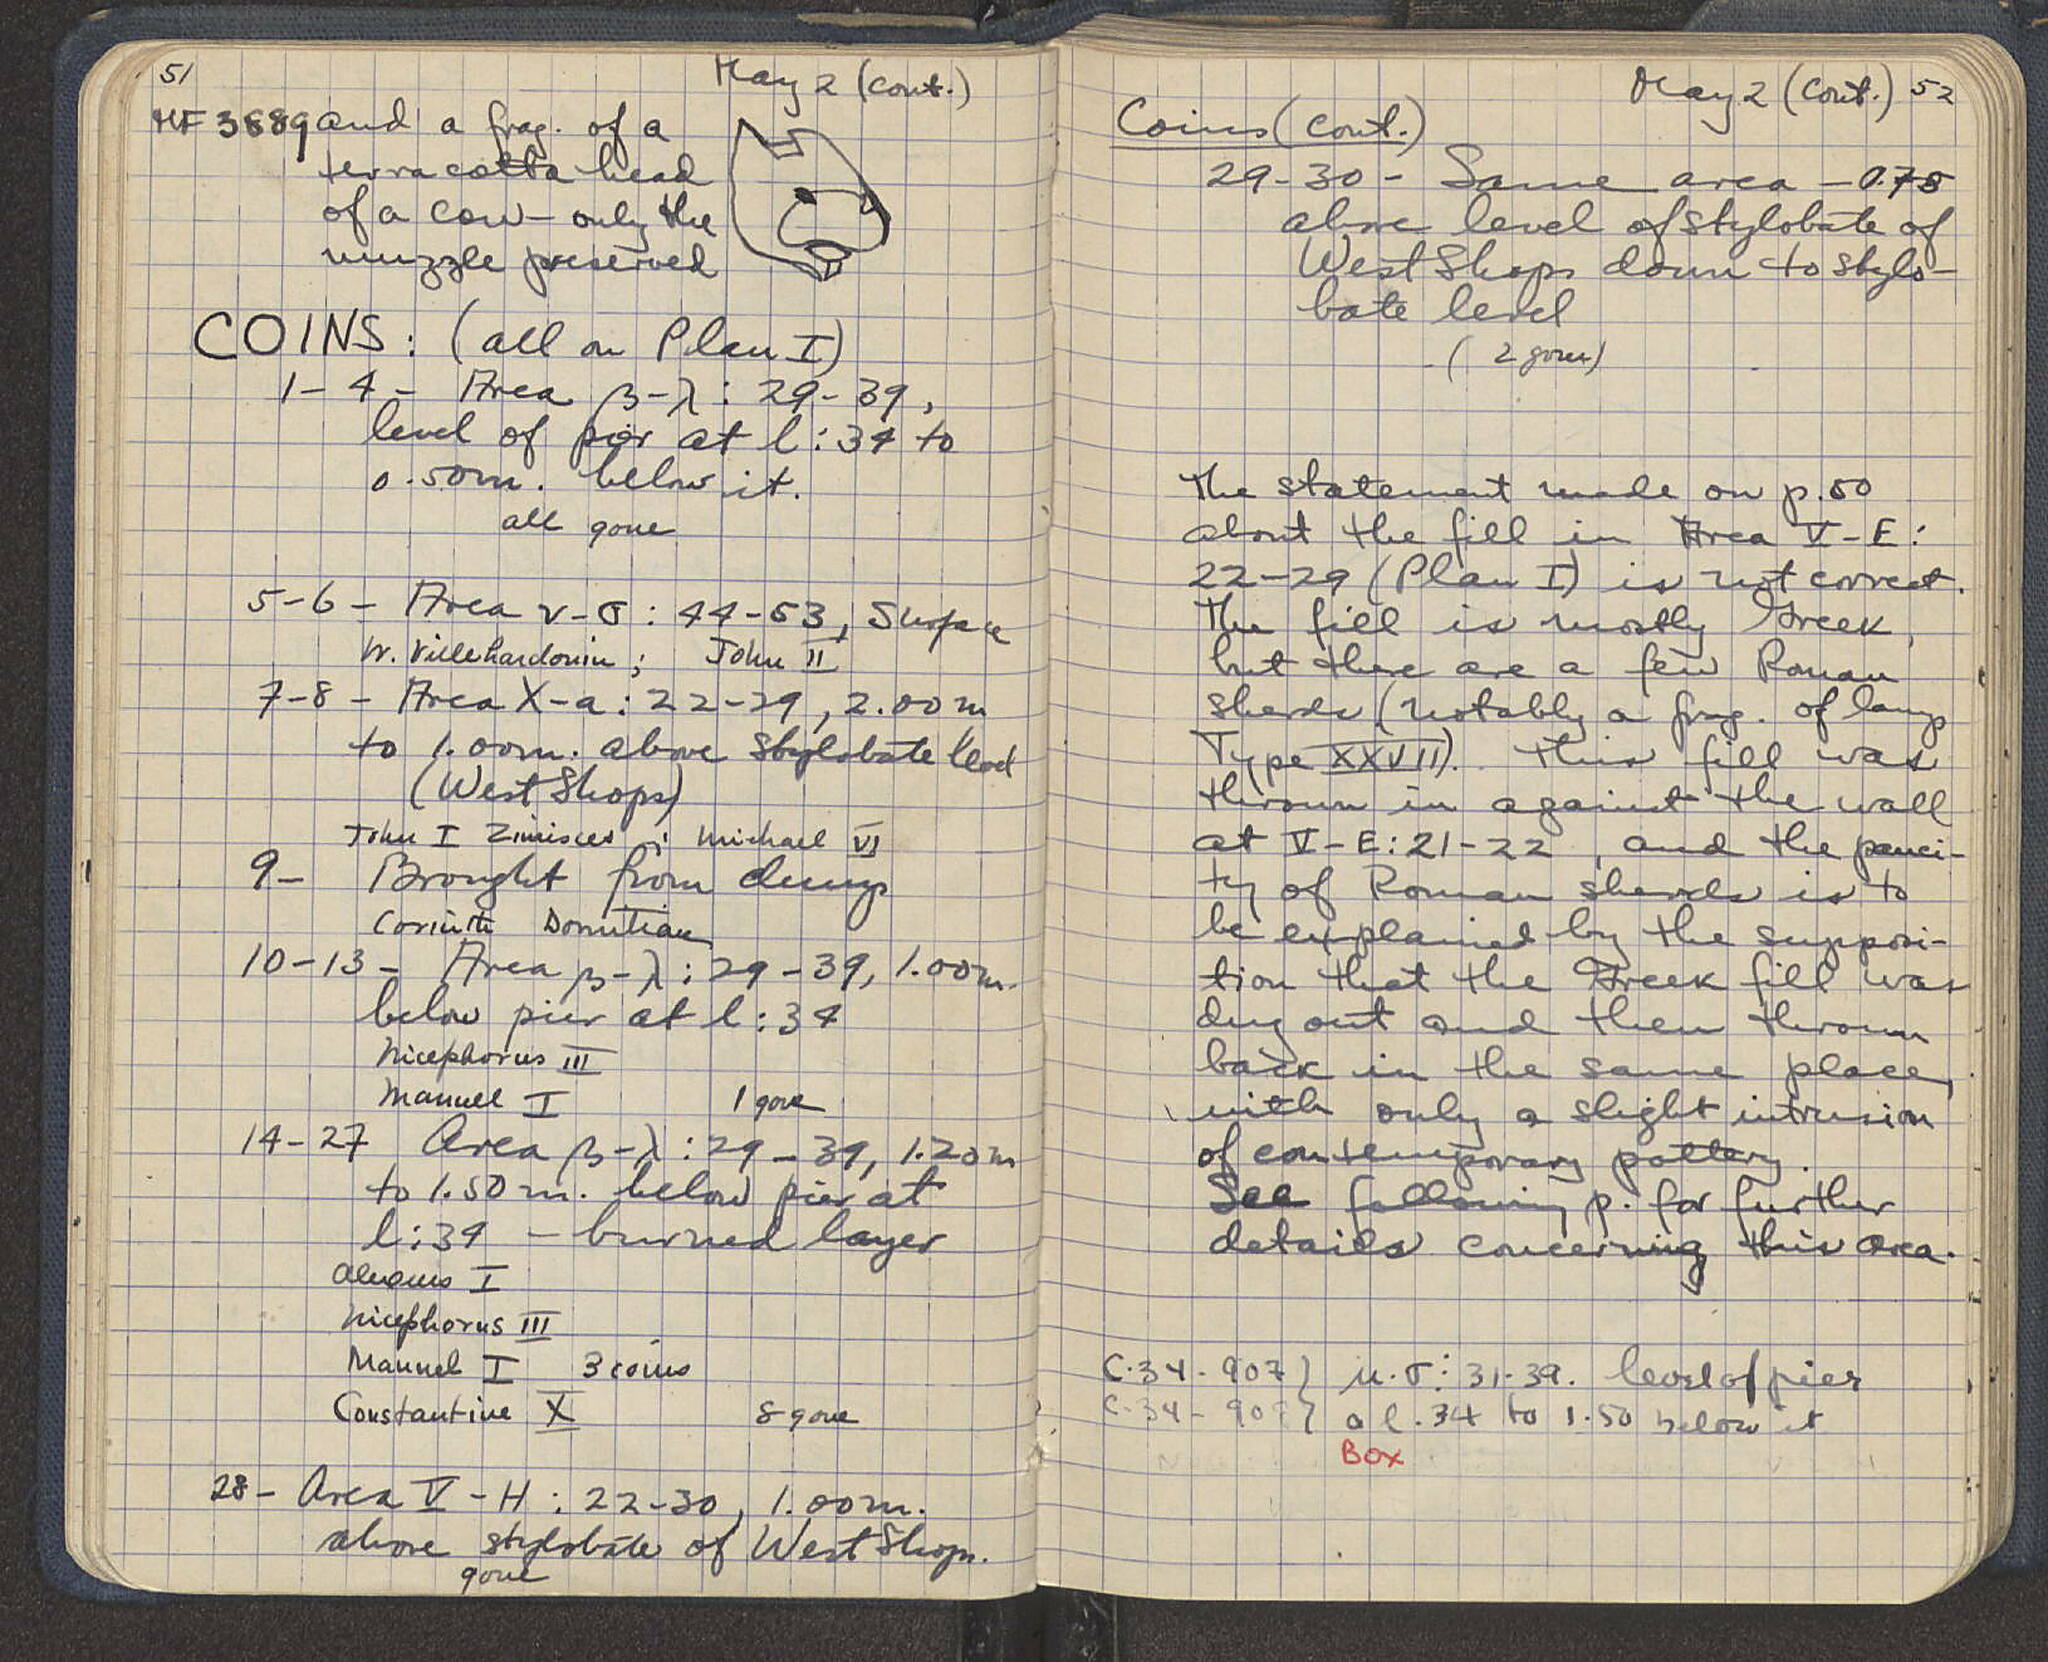 51
May 2 (cont.)
MF 3889 and a frag. of a
terracotta head
of a cow - only the
muzzle preserved
COINS: (all on Plan I)
1-4 - Area β-λ: 29-39,
level of pier at l:34 to
0.50m. below it.
all gone
5-6 - Area ν-σ: 44-53, Surface
W. Villehardouin; John II
7-8 - Area X-a: 22-29, 2.00m
to 1.00m. above stylobate level
(West Shops)
John I Zimisces; Michael VI
9- Brought from dump
Corinth Domitian
10-13 - Area β-λ: 29-39, 1.00m.
below pier at l:34
Nicephorus III
Manuel I 1 gone
14-27 Area β-λ: 29-39, 1.20m
to 1.50m. below pier at
l:34 - burned layer
Alexius I
Nicephorus III
Manuel I 3 coins
Constantine X 8 gone
28- Area V-H: 22-30, 1.00m.
above stylobate of West Shops.
gone
May 2 (cont.) 52
Coins (cont.)
29-30 - Same area - 0.75
above level of stylobate of
West Shops down to stylo-
bate level
(2 gone)
The statement made on p. 50
about the fill in Area V-E:
22-29 (Plan I) is not correct.
The fill is mostly Greek,
but there are a few Roman
sherds (notably a frag. of lamp
Type XXVII). This fill was
thrown in against the wall
at V-E: 21-22, and the pauci-
ty of Roman sherds is to
be explained by the supposi-
tion that the Greek fill was
dug out and then thrown
back in the same place,
with only a slight intrusion
of contemporary pottery.
See following p. for further
details concerning this area.
C.34-907} μ.σ: 31-39. level of pier
C-34-90 } a l.34 to 1.50 below it
Box